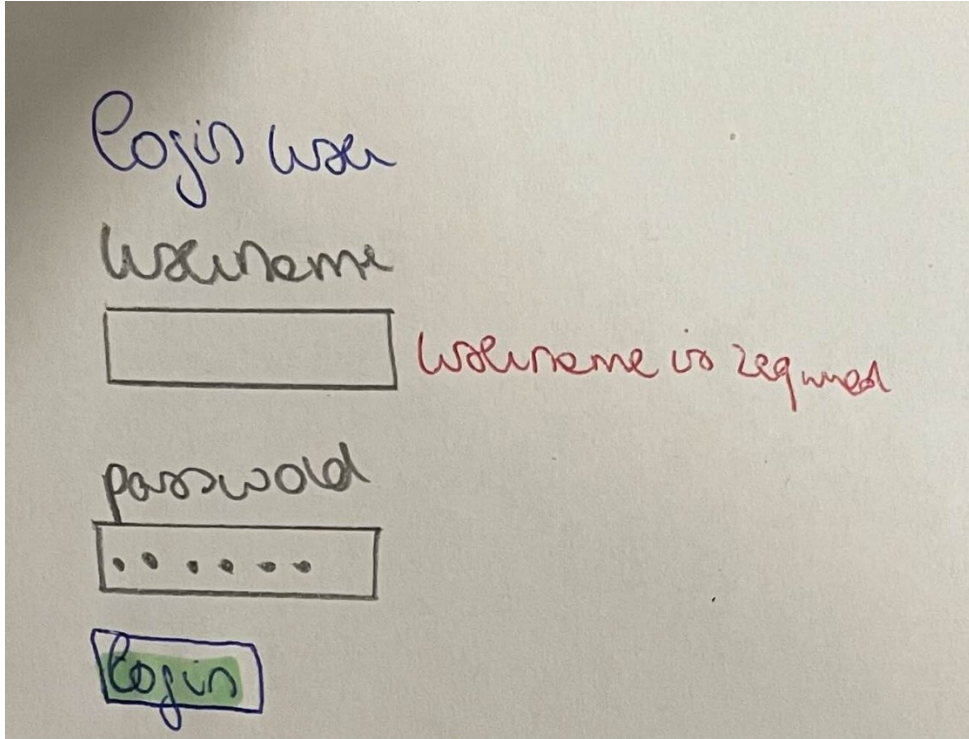 Login user
Username
Username is required
password
Login